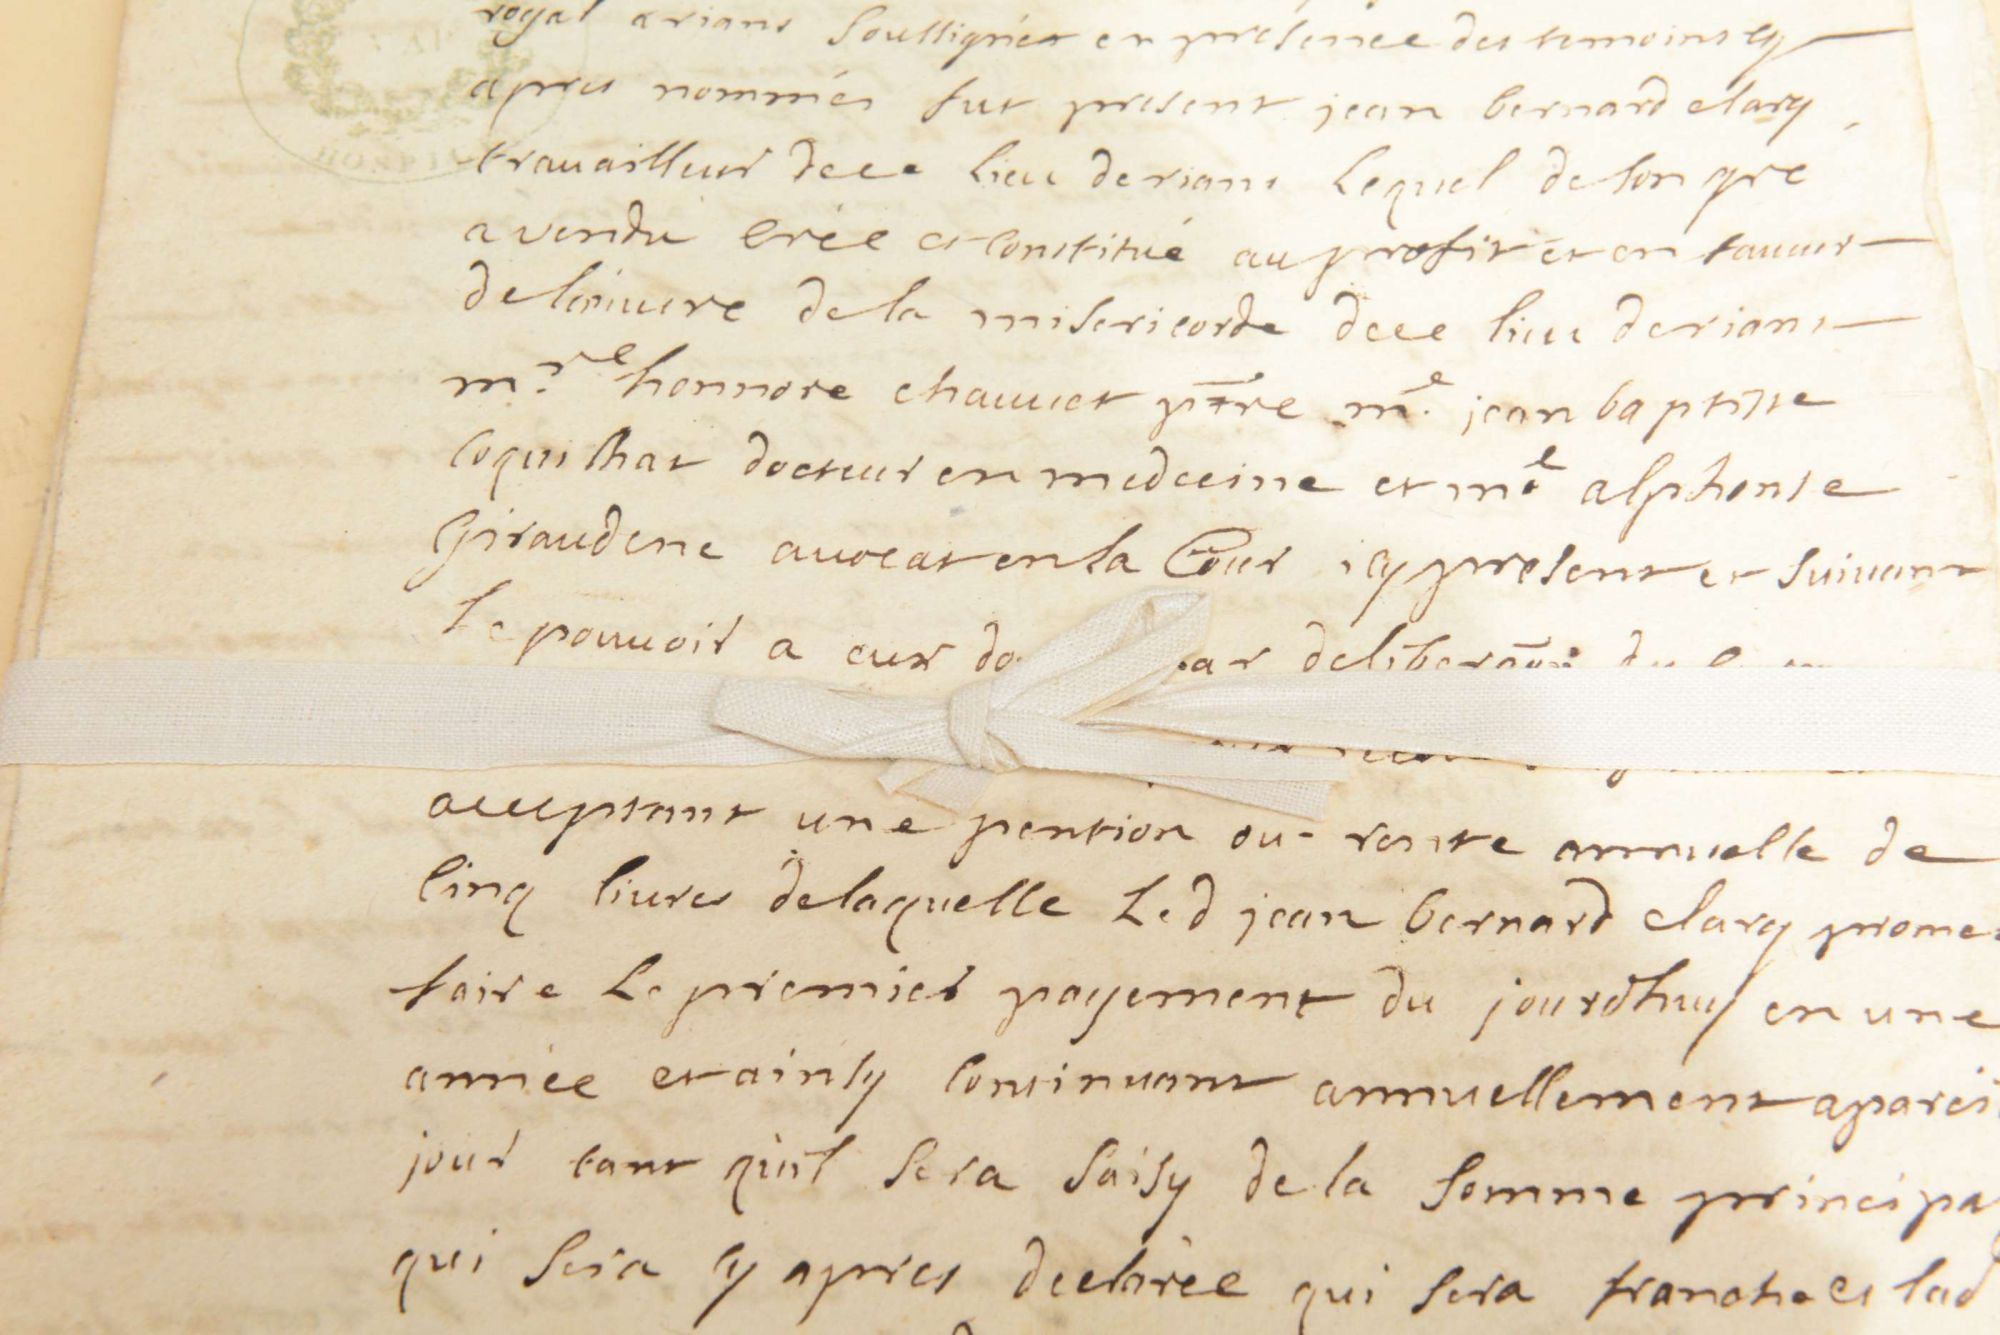 royal a rians soussignés en presence des temoins cy
apres nommés fut present jean bernard clary
travailleur de ce lieu de rians lequel de son gré
a vendu créé et constitué au profit et en faveur
de lœuvre de la misericorde de ce lieu de rians
m.re honnore chauvet ptre m.e jean baptiste
coquilhat docteur en medecine et m.e alphonse
Giraudene avocat en la Cour icy present et suivant
le pouvoir a eux deliberaon du
acceptant une pention ou rente annuelle de
cinq livres de laquelle Led jean bernard clary promet
faire Le premier payement du jourdhuy en une
année et ainsy continuant annuellement a pareil
jour tant quil sera saisy de la somme principa
qui sera cy apres declarée qui sera franche et lad